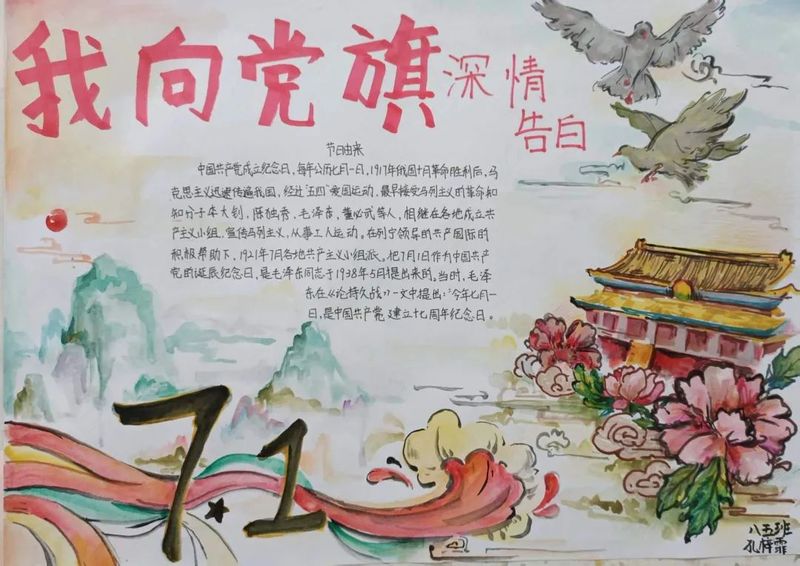 我向党旗深情
告白
节日由来
中国共产党成立纪念日，每年公历七月一日，1917年俄国十月革命胜利后，马
克思主义迅速传遍我国，经过"五四"爱国运动，最早接受马列主义的革命知
知分子李大钊，陈独秀，毛泽东，董必武等人，相继在各地成立共
产主义小组，宣传马列主义，从事工人运动。在列宁领导的共产国际的
积极帮助下，1921年7月各地共产主义小组派，把7月1日作为中国共产
党的诞辰纪念日，是毛泽东同志于1938年5月提出来的。当时，毛泽
东在《论持久战》一文中提出："今年七月一
日，是中国共产党建立十七周年纪念日。
7.1
八五班
孔梓霏